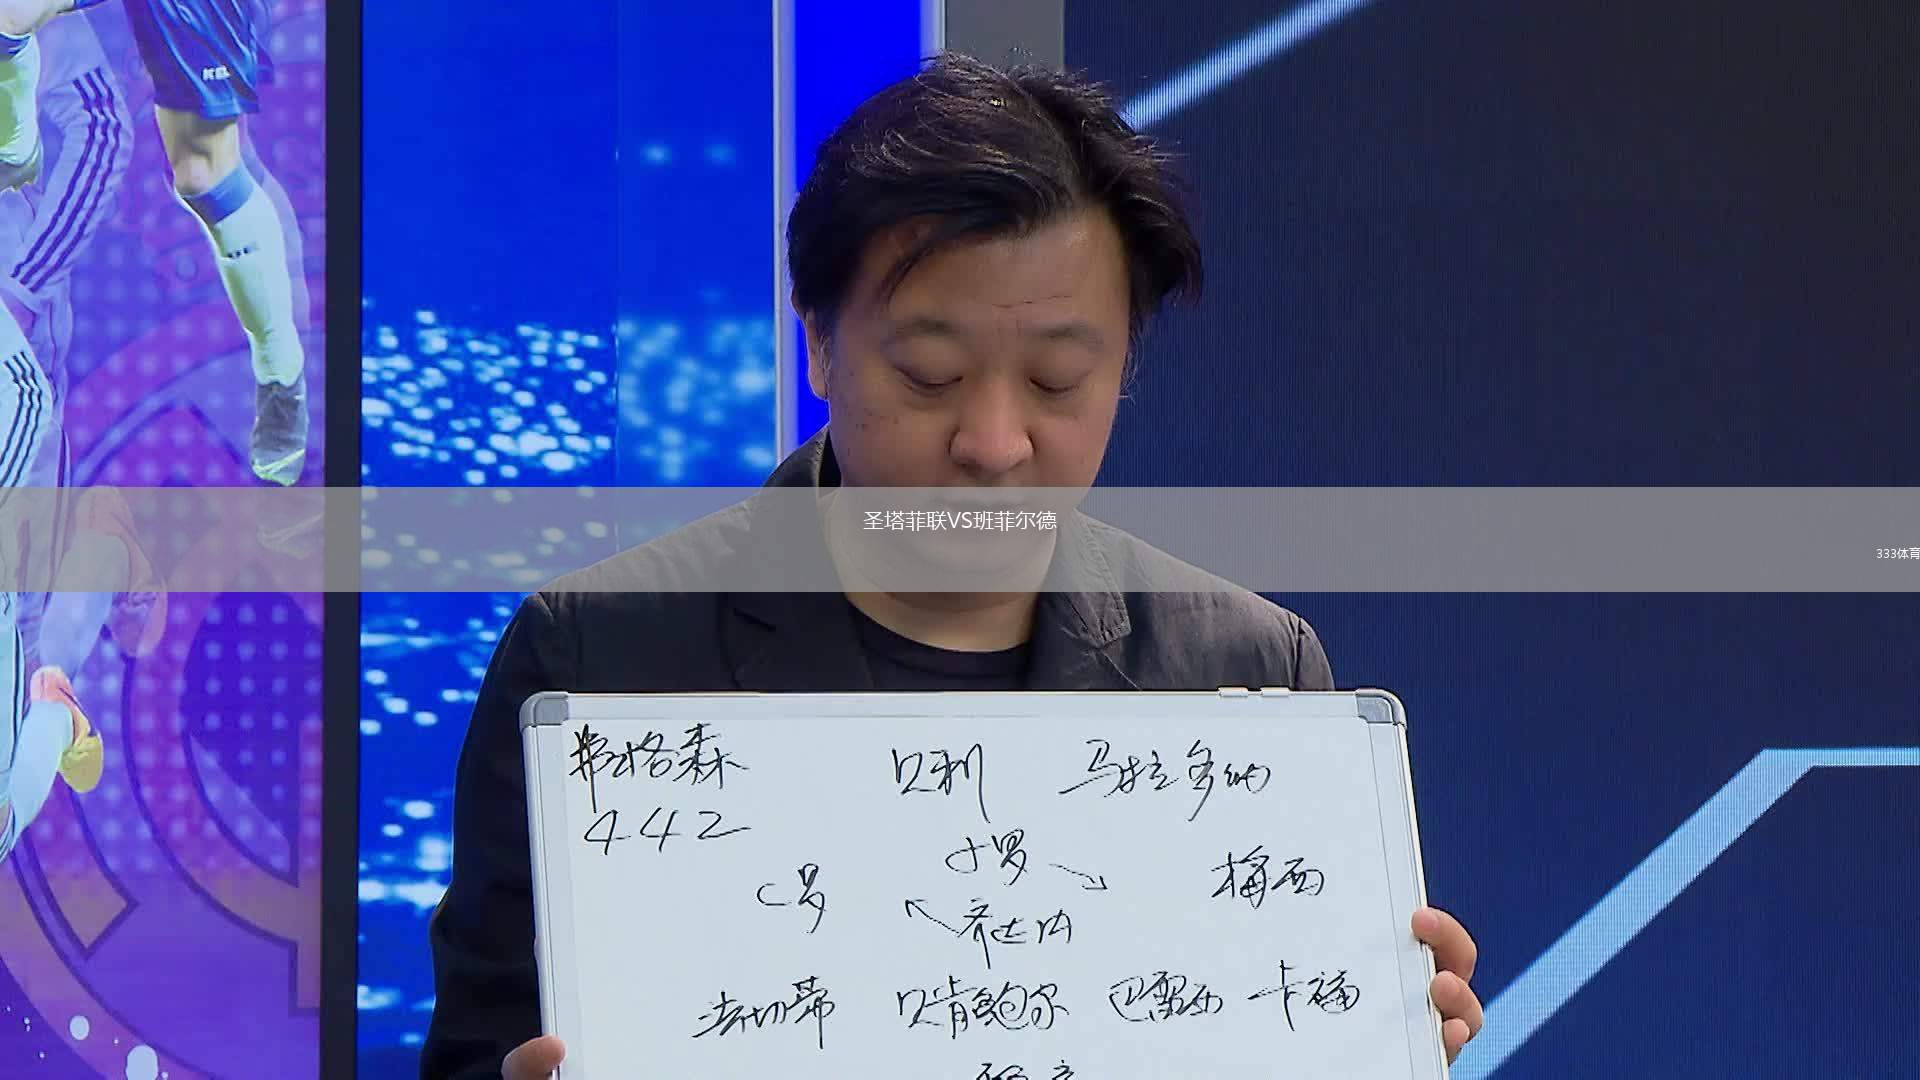 圣塔菲联VS班菲尔德
333体育
弗格森 贝利 马拉多纳
442
小罗
C罗 梅西
齐达内
法切蒂 贝肯鲍尔 巴雷西 卡福